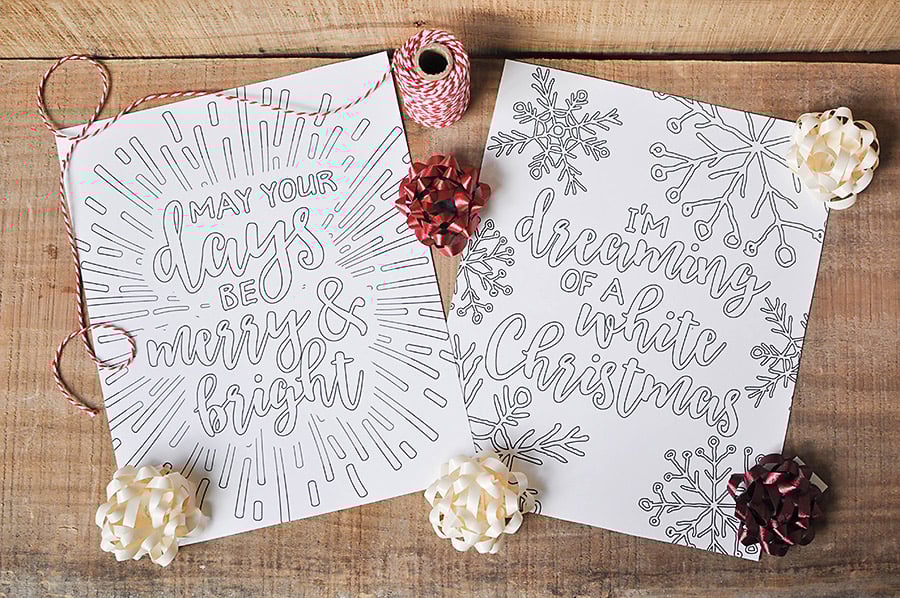 MAY YOUR
days
BE
merry &
bright
I'M
dreaming
OF A
white
Christmas